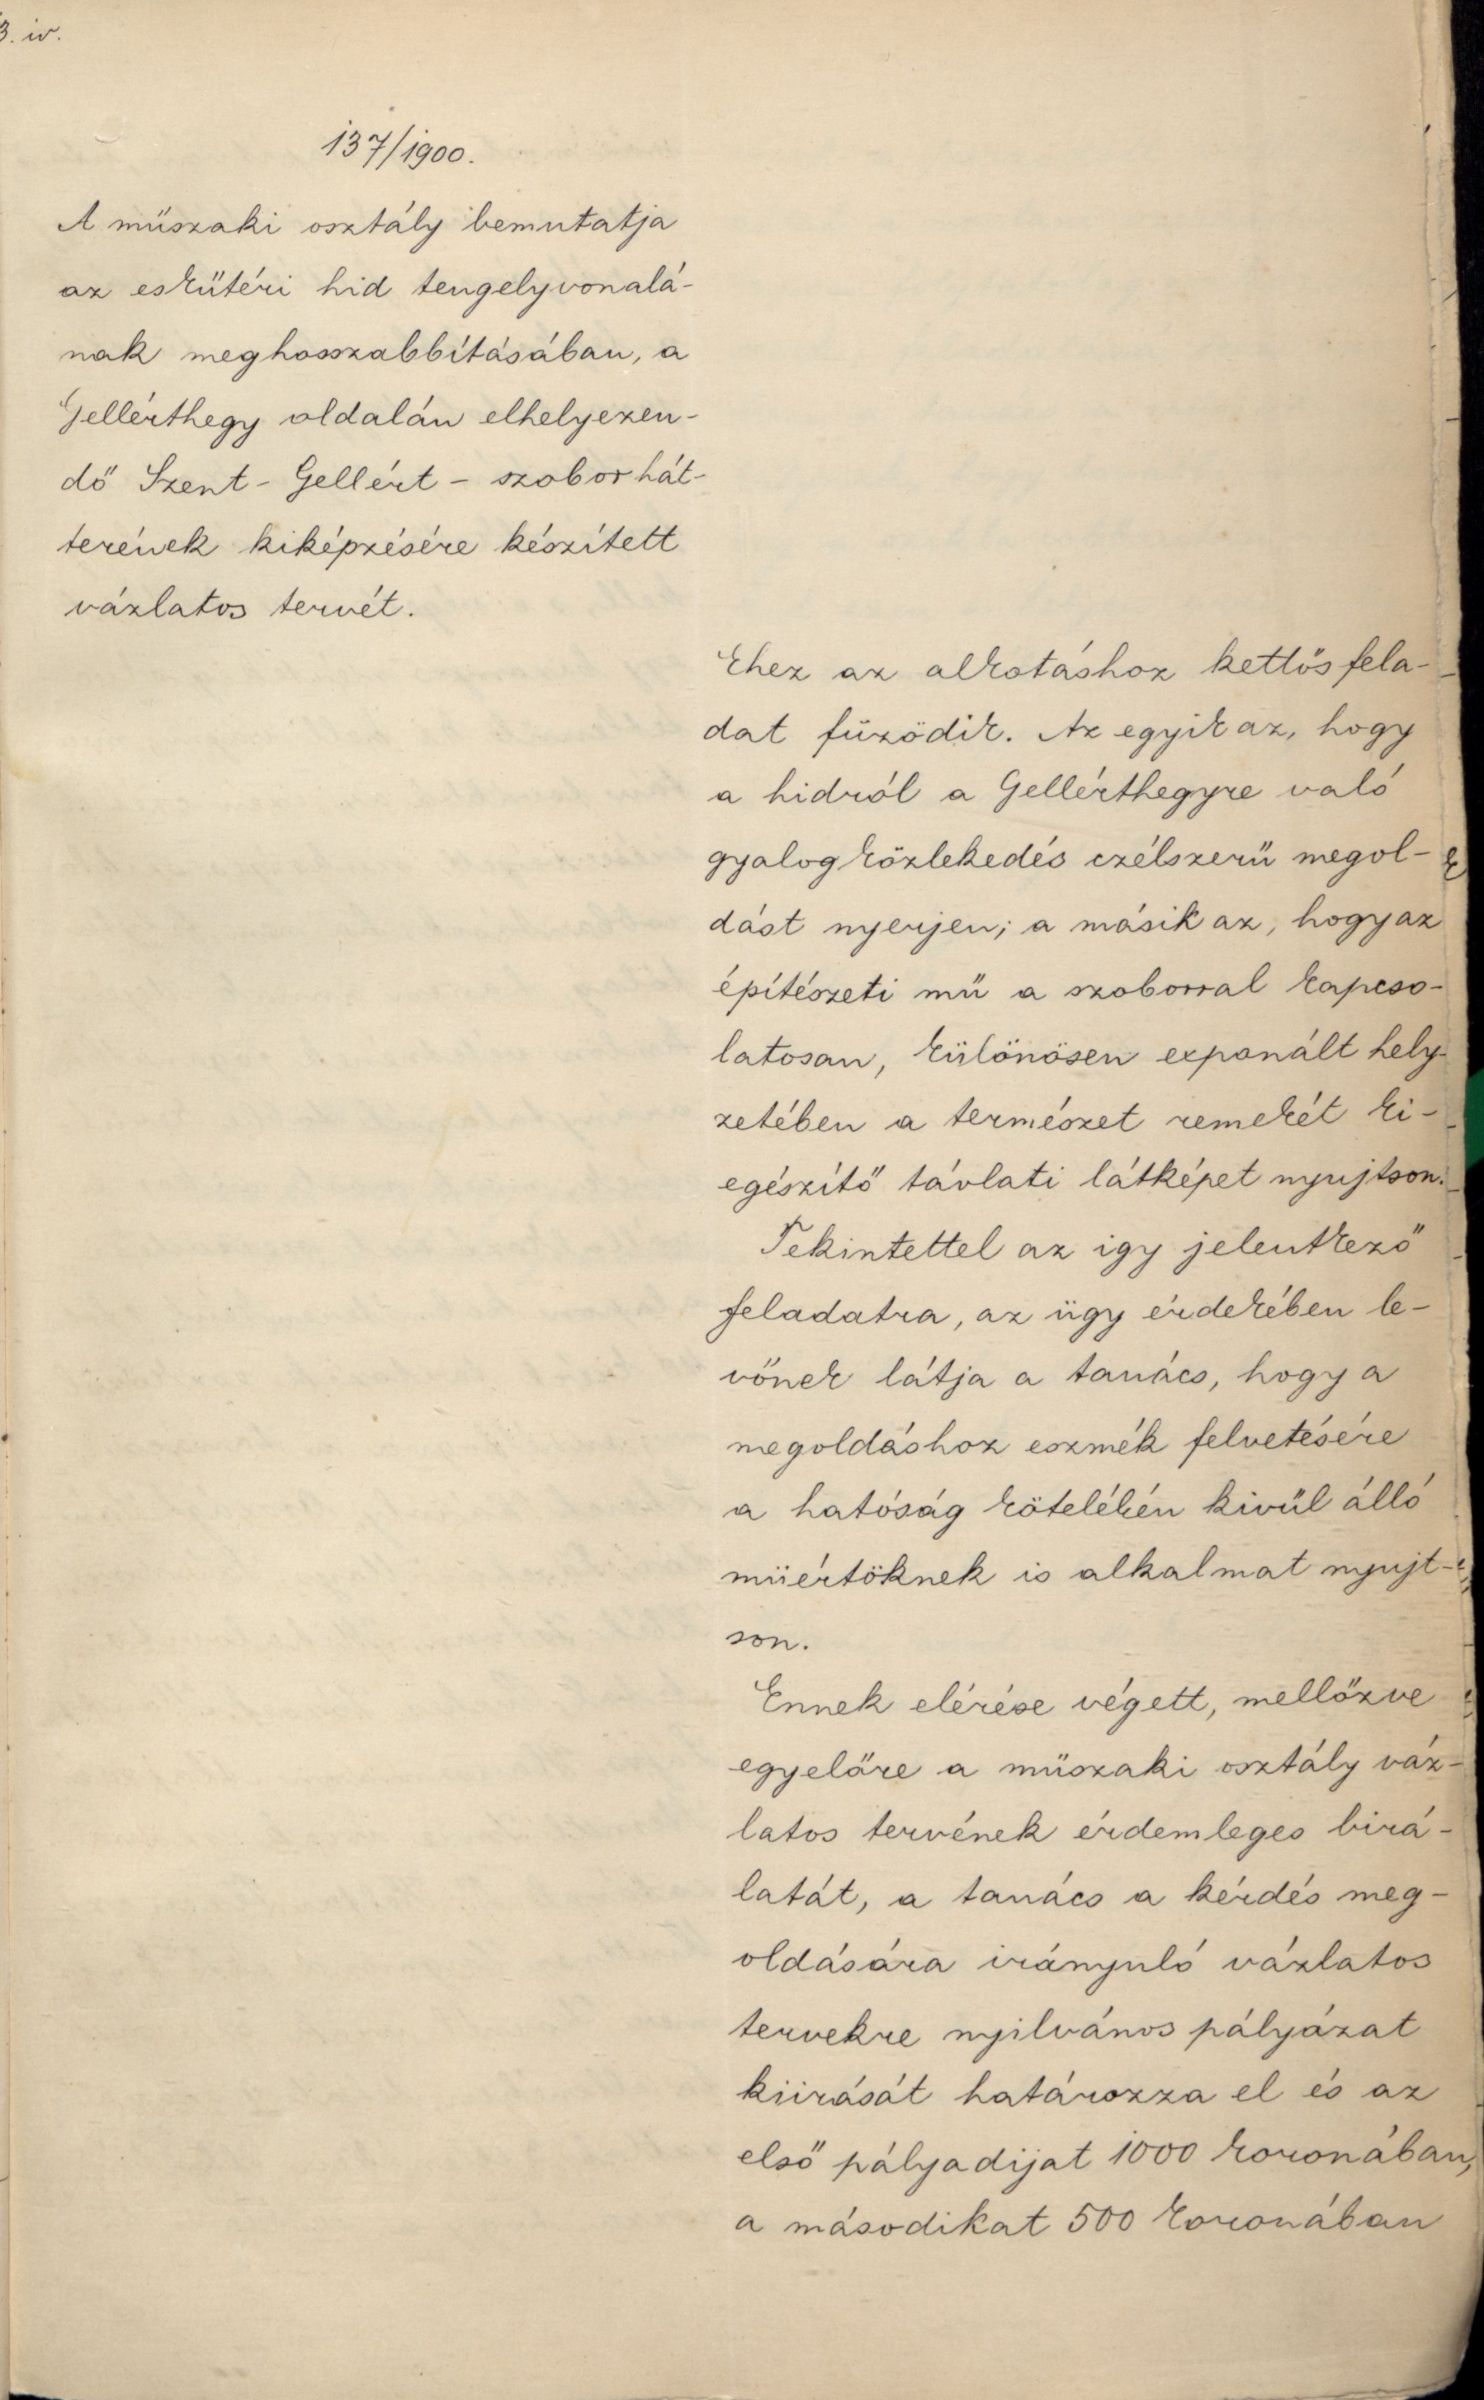 3. iv.
137/1900.
A műszaki osztály bemutatja
az eskütéri hid tengelyvonalá-
nak meghosszabbításában, a
Gellérthegy oldalán elhelyezen-
dő Szent-Gellért-szobor hát-
terének kiképzésére készített
vázlatos tervét.
Ehez az alkotáshoz kettős fela-
dat füződik. Az egyik az, hogy
a hidról a Gellérthegyre való
gyalogközlekedés czélszerü megol-
dást nyerjen; a másik az, hogy az
építészeti mű a szoborral kapcso-
latosan, különösen exponált hely-
zetében a természet remekét ki-
egészítő távlati látképet nyujtson.
Tekintettel az igy jelentkező
feladatra, az ügy érdekében le-
vőnek látja a tanács, hogy a
megoldáshoz eszmék felvetésére
a hatóság kötelékén kivül álló
müértöknek is alkalmat nyujt-
son.
Ennek elérése végett, mellőzve
egyelőre a műszaki osztály váz-
latos tervének érdemleges birá-
latát, a tanács a kérdés meg-
oldására irányuló vázlatos
tervekre nyilvános pályázat
kiirását határozza el és az
első pályadijat 1000 koronában,
a másodikat 500 koronában